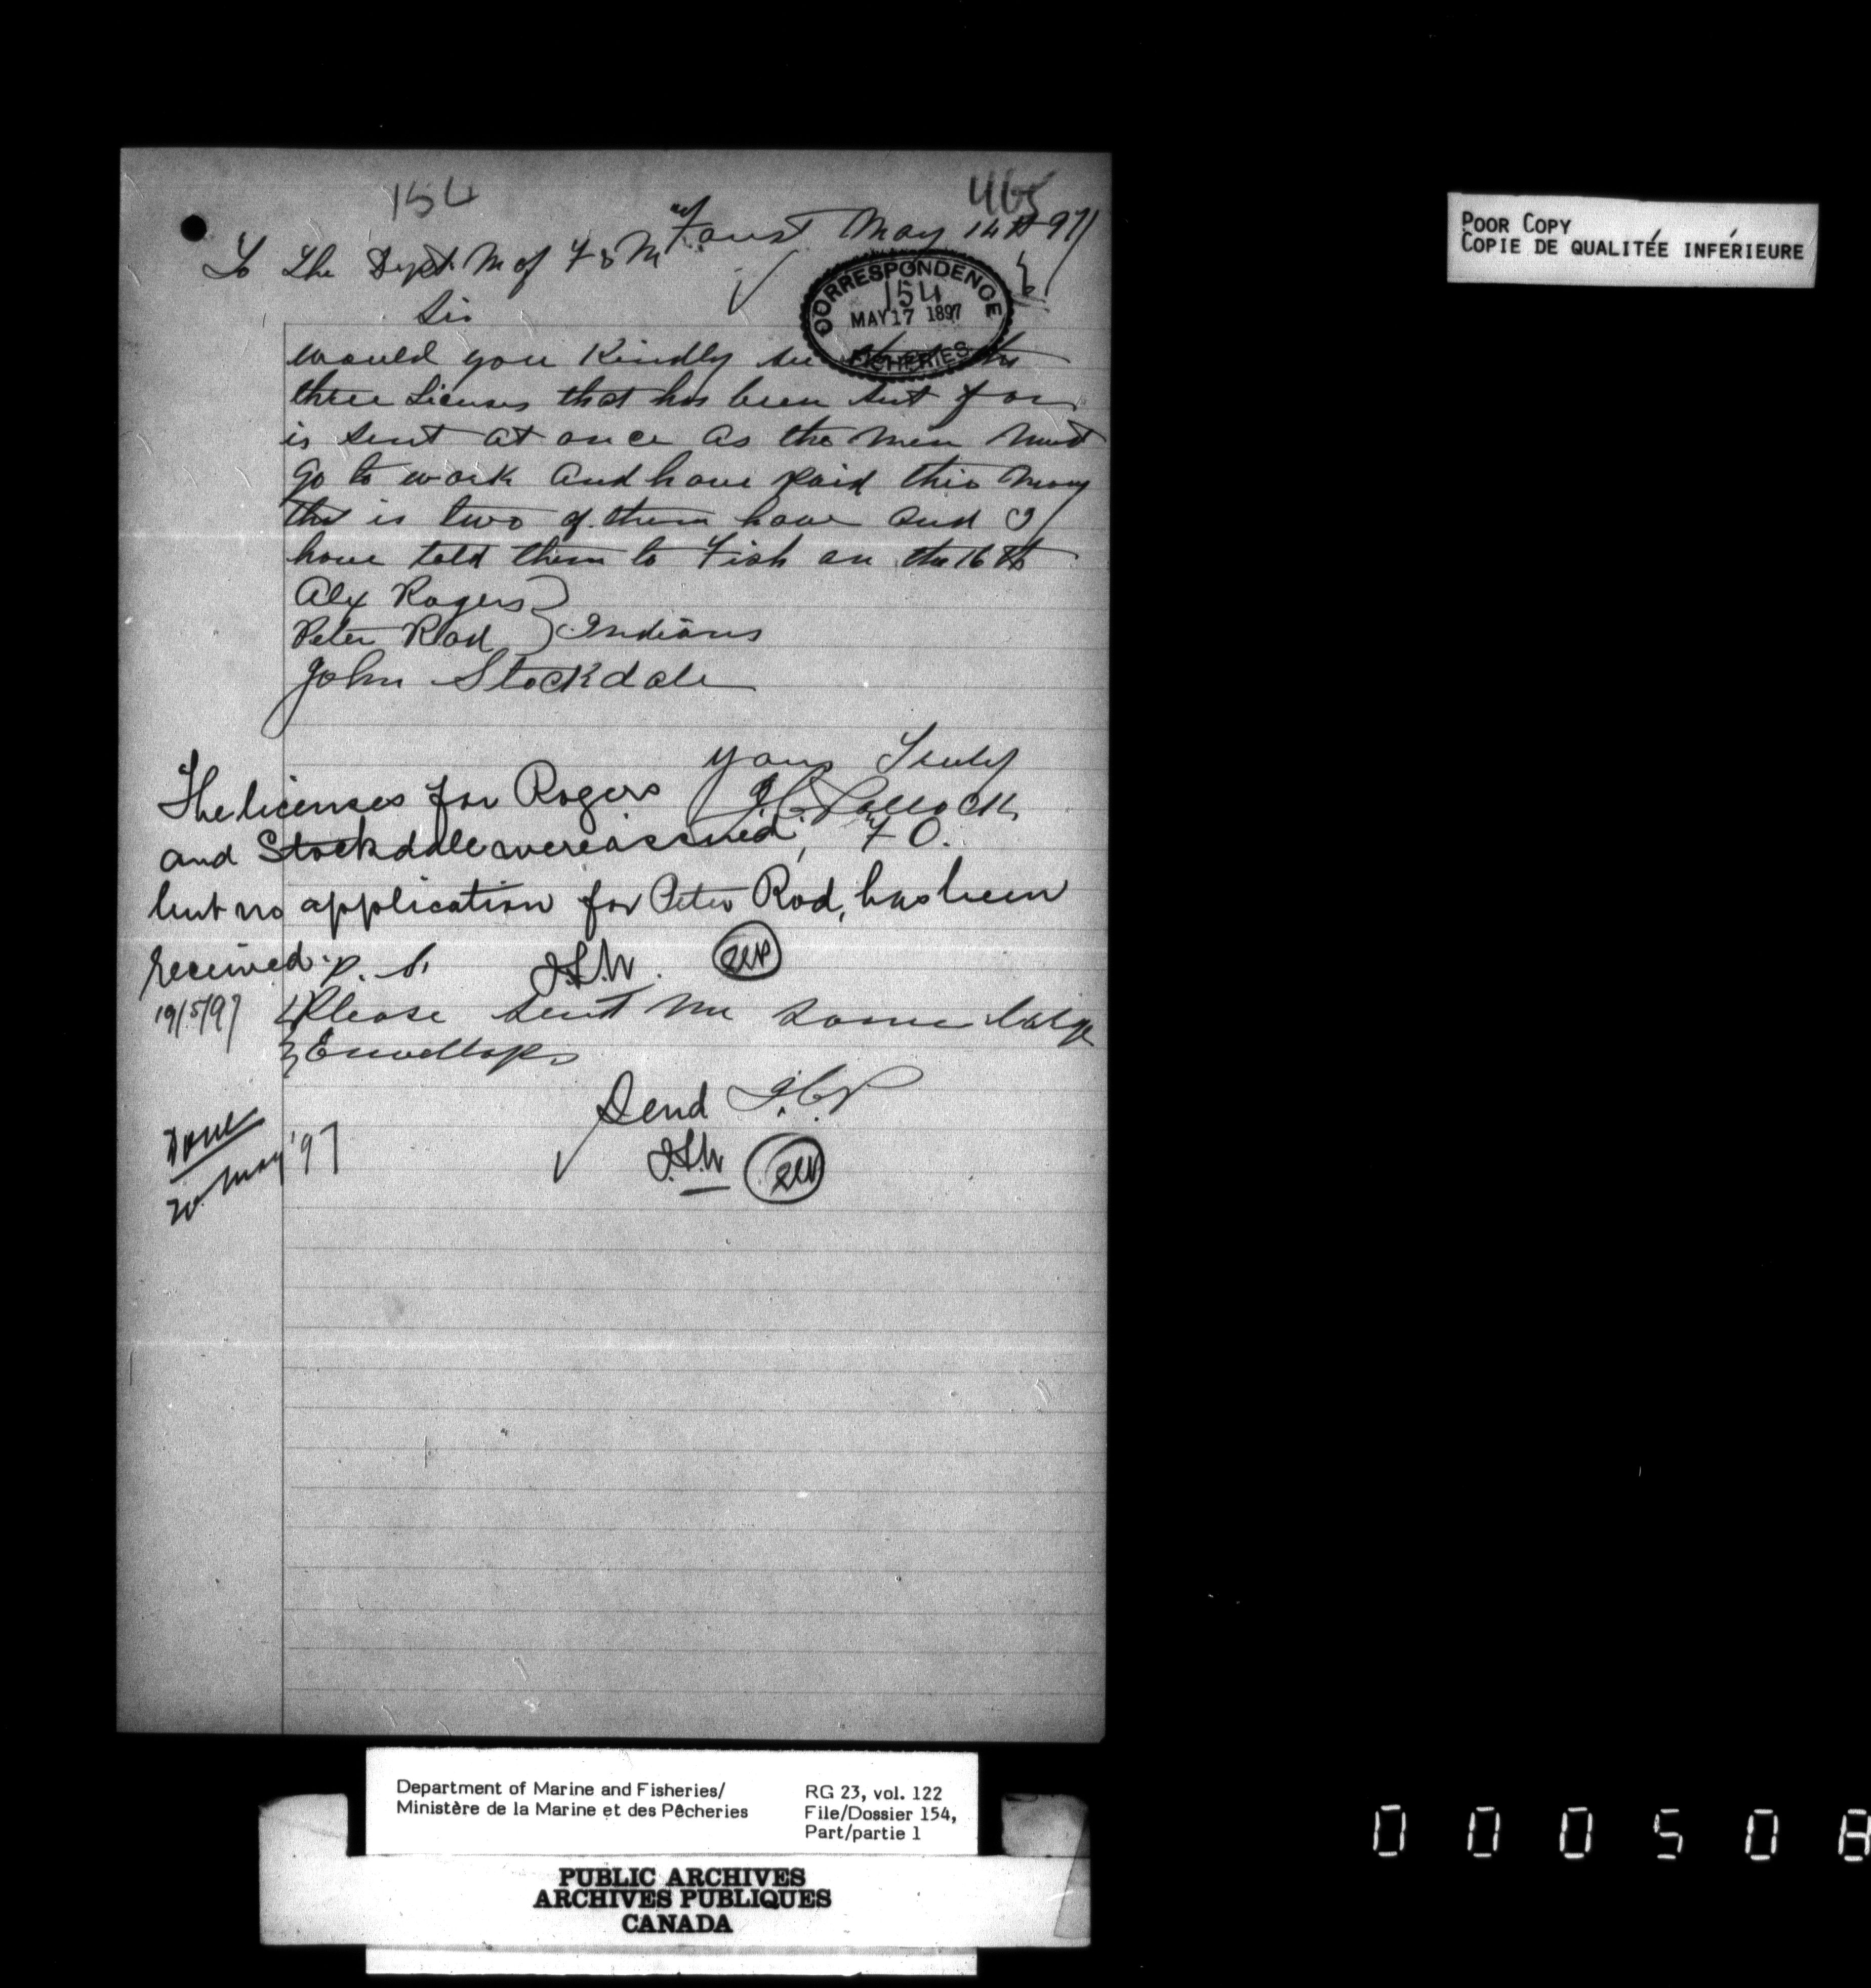 154
465
Forest May 14th 97
To The Dept M of F & M
Sir
CORRESPONDENCE
154
MAY 17 1897
FISHERIES
would you Kindly see the
three Licenses that has been sent for
is sent at once as the men must
go to work and have paid this mony
that is two of them have and I
have told them to Fish on the 16th
Alex Rogers
Peter Rod } Indians
John Stockdale
yours Truly
J.C. Pollock
F O.
The licenses for Rogers
and Stockdale were issued,
but no application for Peter Rod, has been
received.
19/5/97
p. s.
Please sent me some large
Envellops
J.C.P
Send
Done
20 May '97
POOR COPY
COPIE DE QUALITÉE INFÉRIEURE
Department of Marine and Fisheries/
Ministère de la Marine et des Pêcheries
RG 23, vol. 122
File/Dossier 154,
Part/partie 1
PUBLIC ARCHIVES
ARCHIVES PUBLIQUES
CANADA
000508